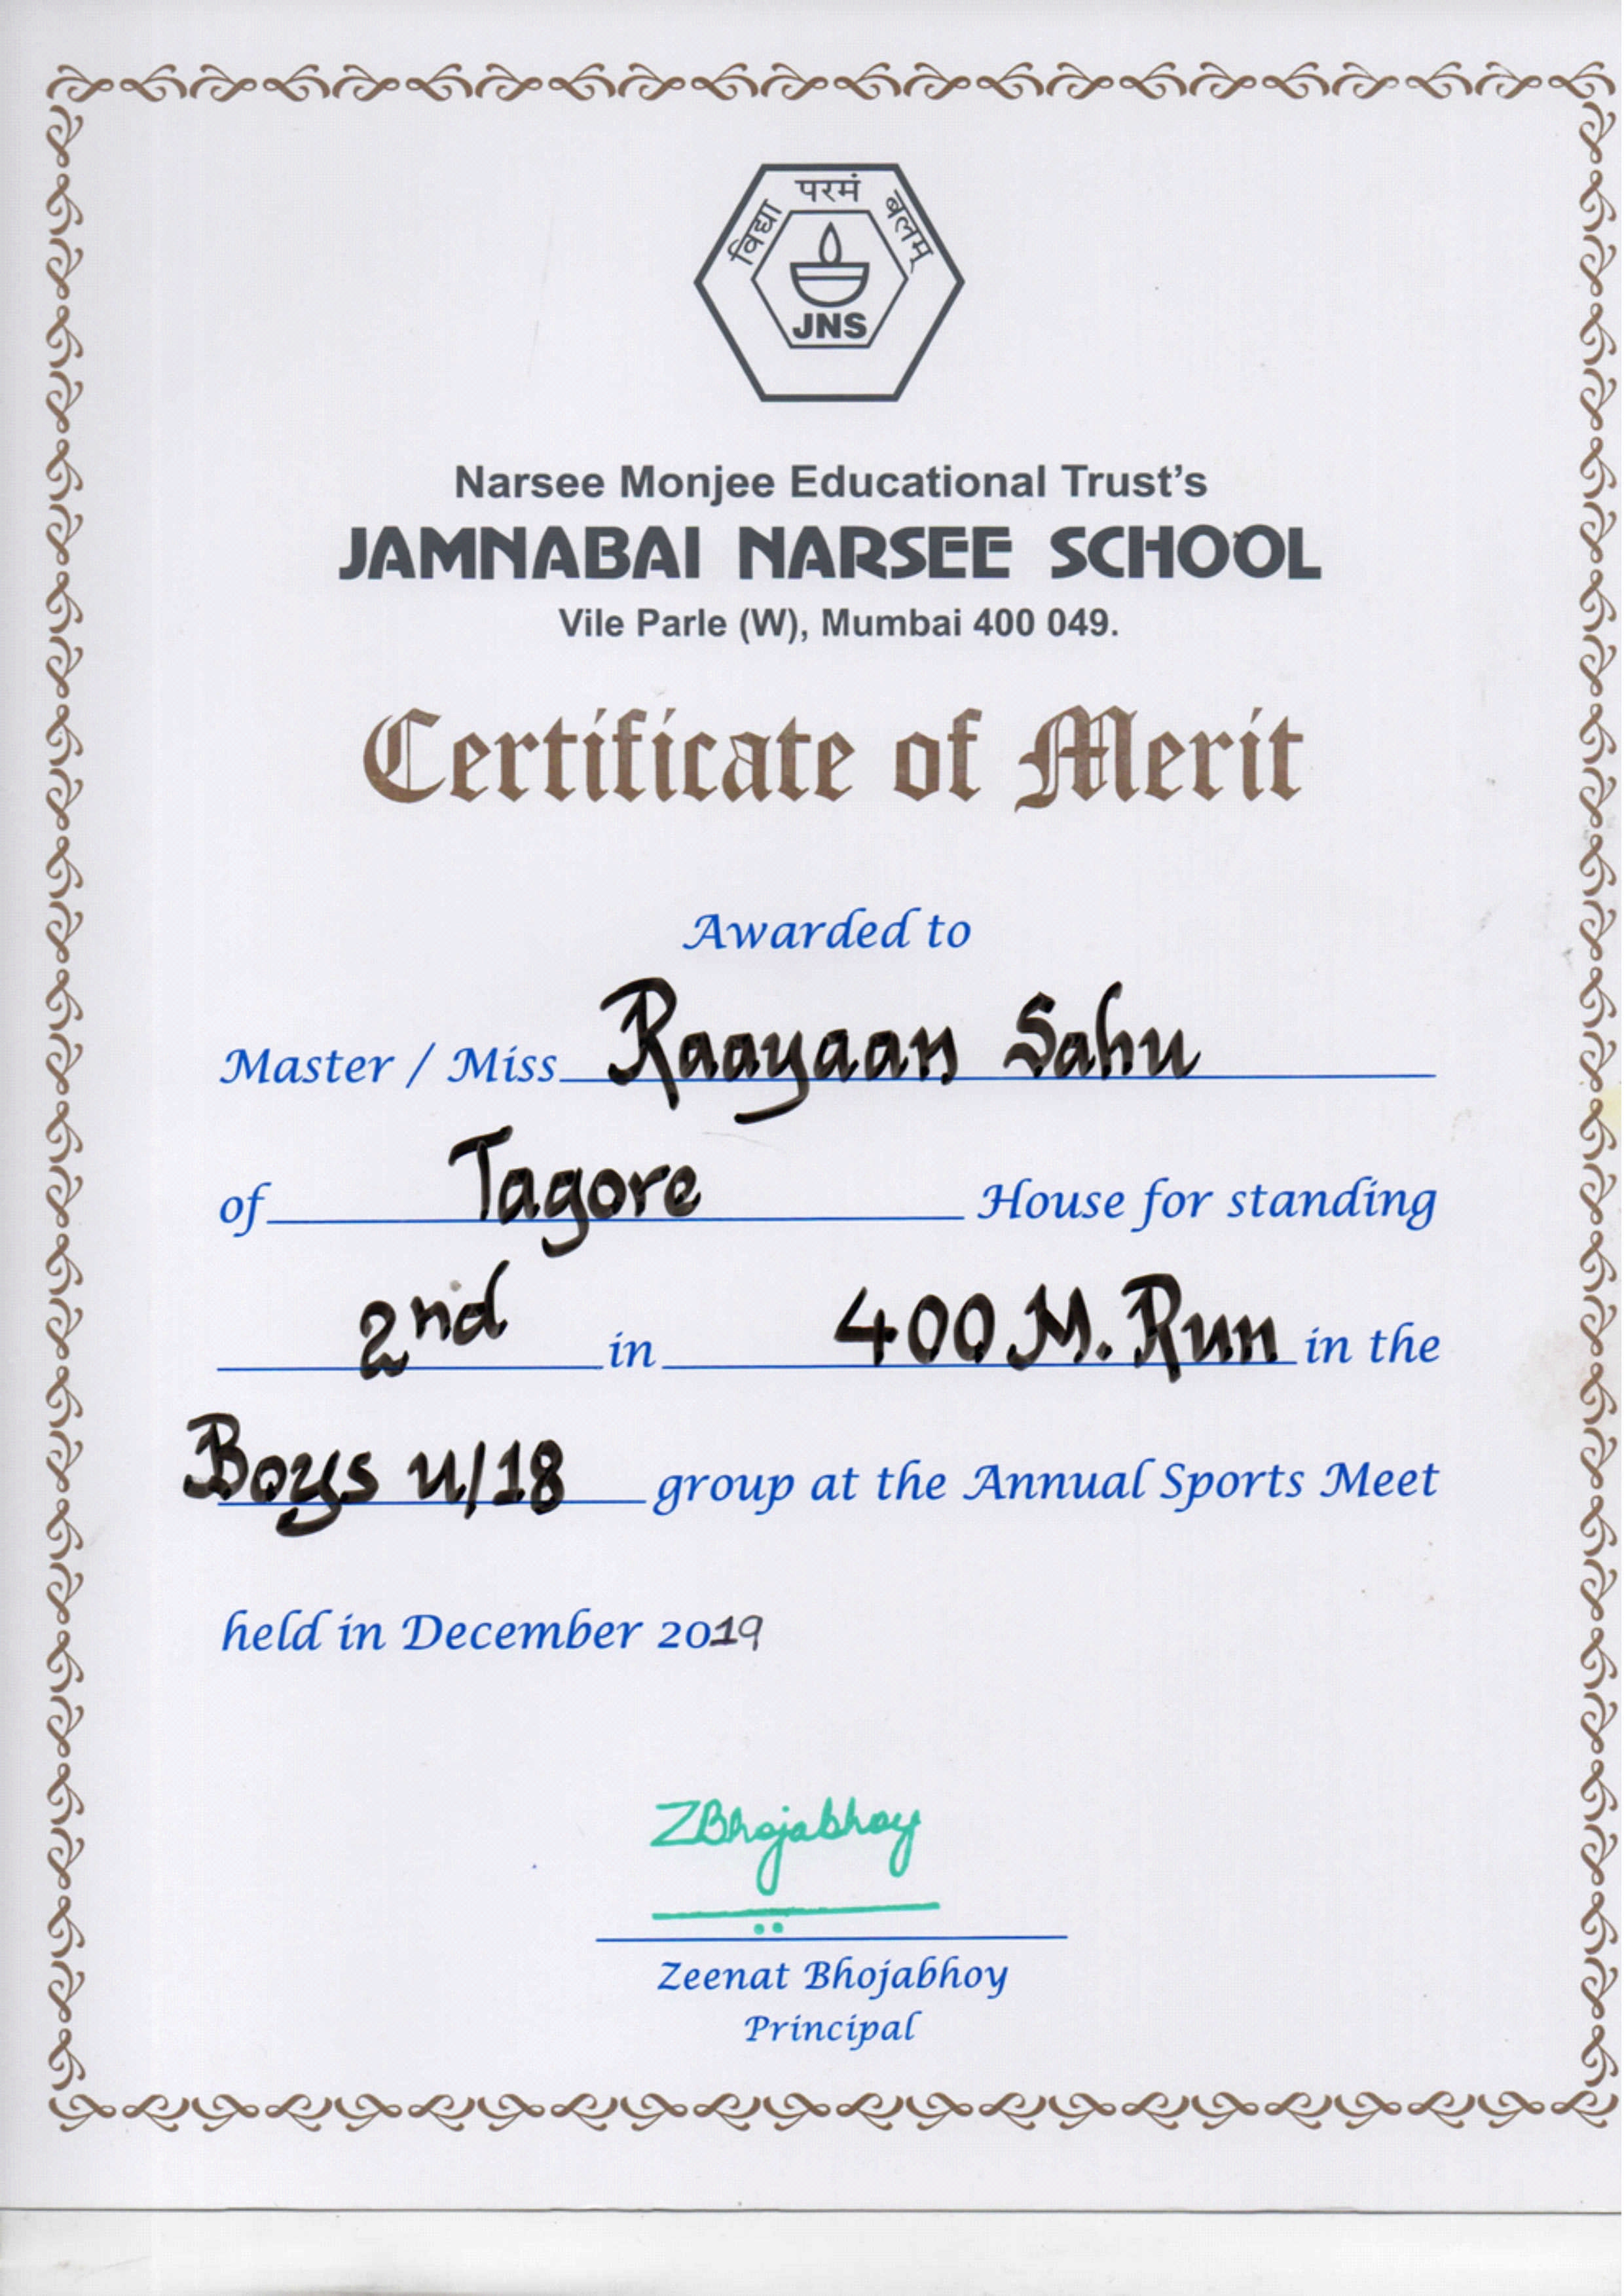 विद्या परमं बलम्
JNS
Narsee Monjee Educational Trust's
JAMNABAI NARSEE SCHOOL
Vile Parle (W), Mumbai 400 049.
Certificate of Merit
Awarded to
Master / Miss Raayaan Sahu
of Tagore House for standing
2nd in 400 M. Run in the
Boys u/18 group at the Annual Sports Meet
held in December 2019
ZBhojabhoy
Zeenat Bhojabhoy
Principal